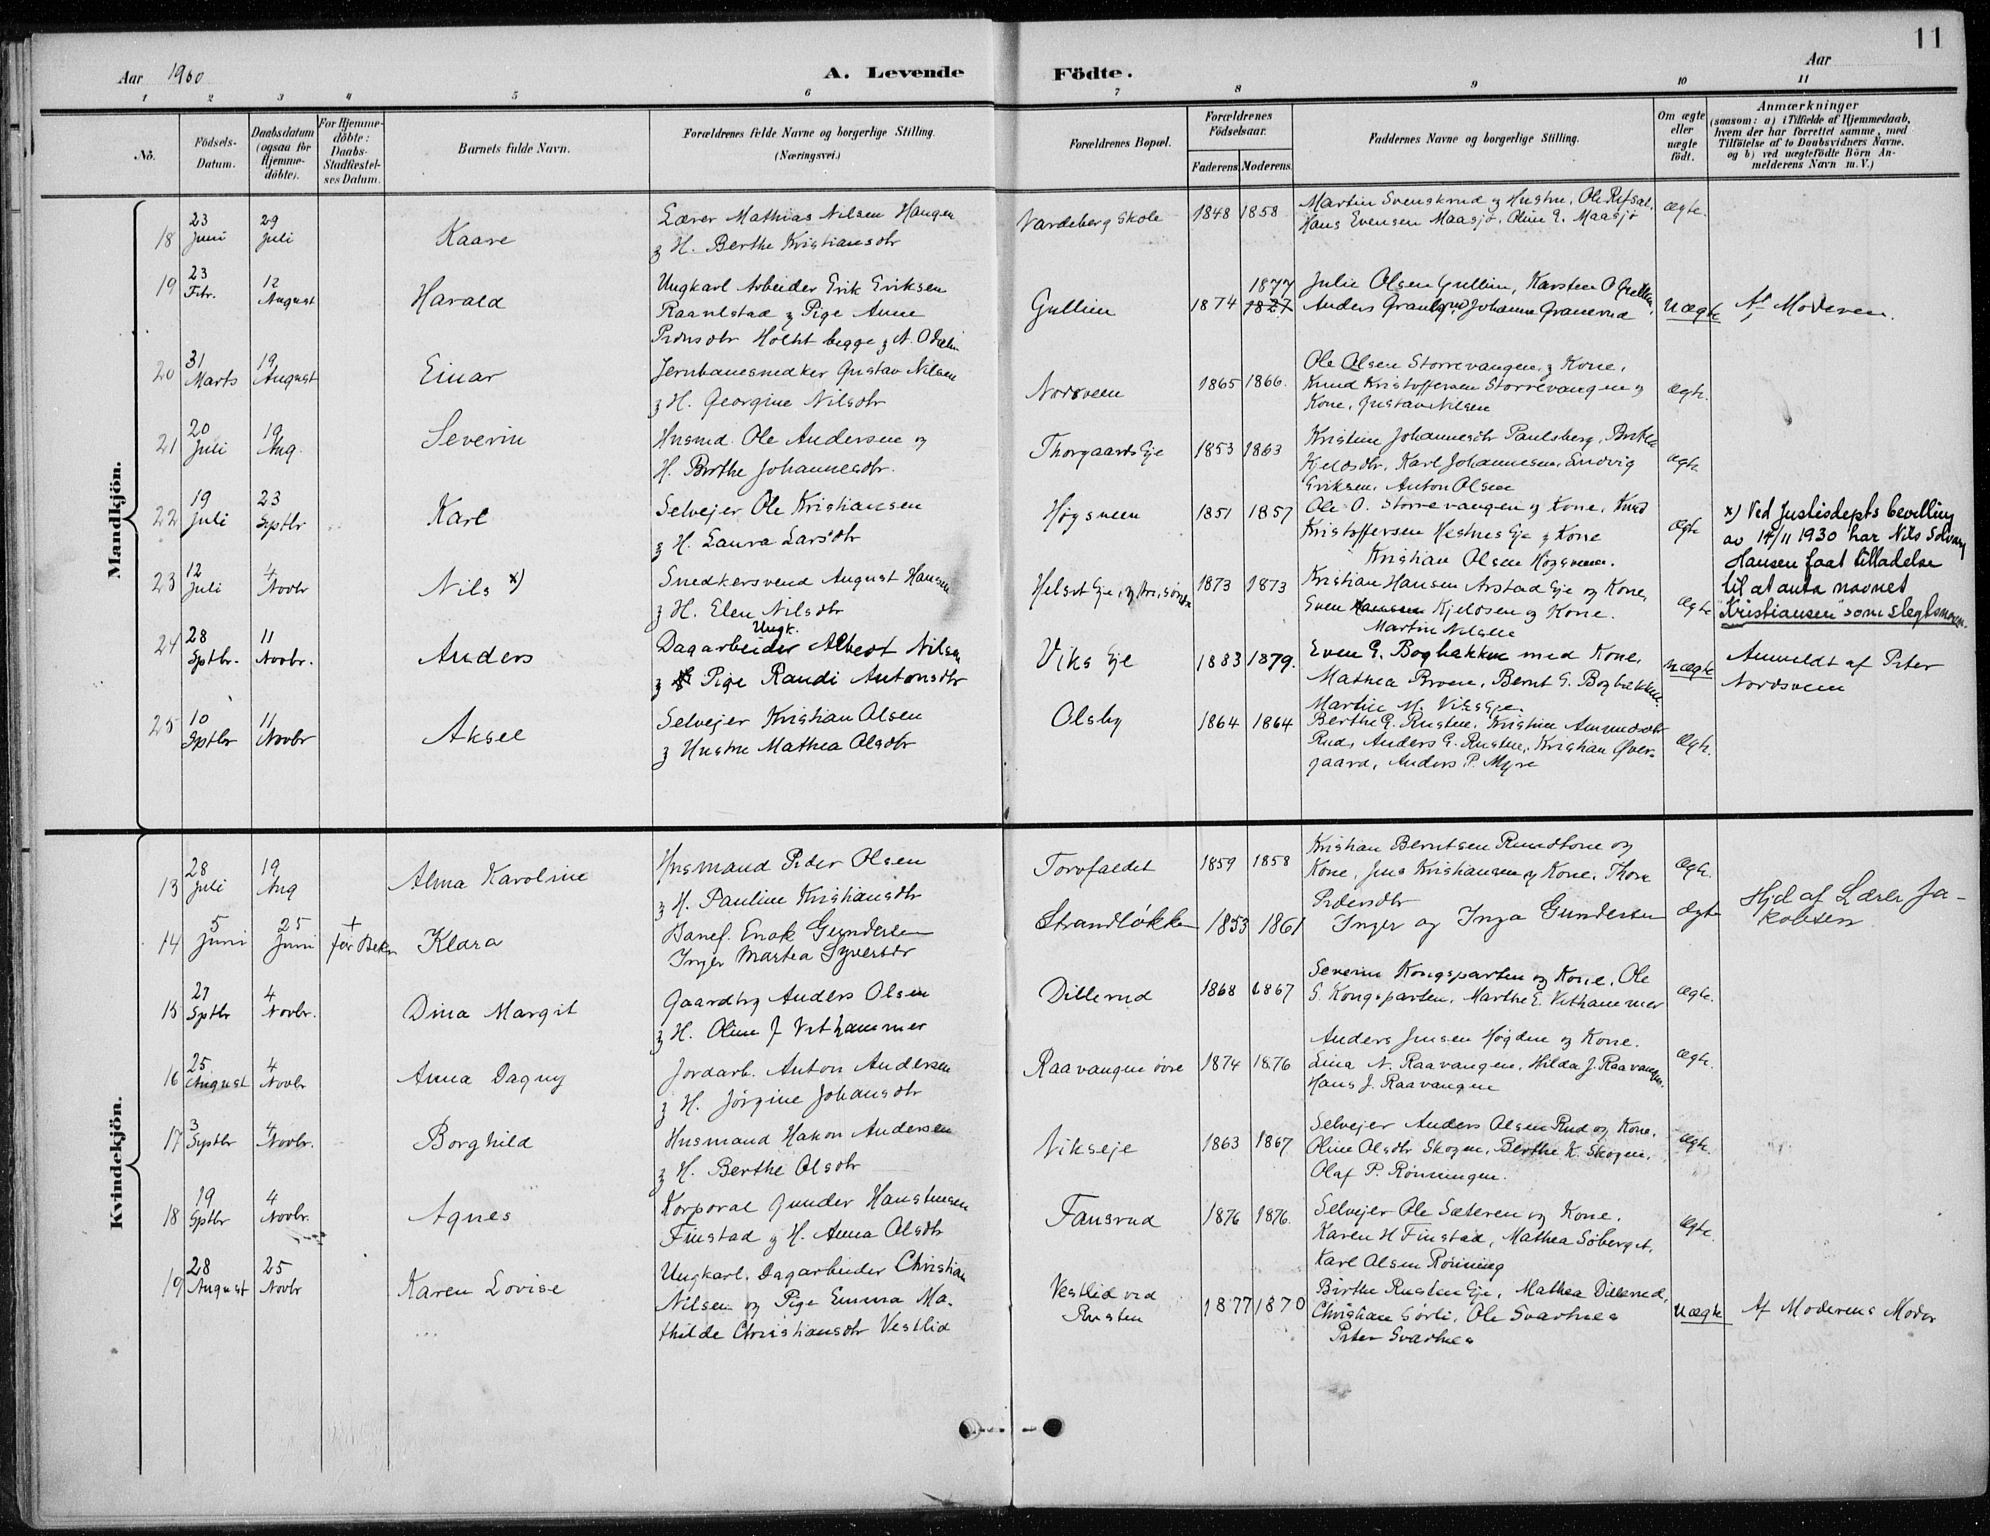 11
Aar 1900
A. Levende Födte.
Aar
1 2 3 4 5 6 7 8 9 10 11
No.
Födsels-Datum.
Daabsdatum (ogsaa for Hjemme-döbte).
For Hjemme-döbte: Daabs-Stadfæstel-ses Datum.
Barnets fulde Navn.
Forældrenes fulde Navne og borgerlige Stilling. (Næringsvei.)
Forældrenes Bopæl.
Forældrenes Födselsaar.
Faderens Moderens
Faddernes Navne og borgerlige Stilling.
Om ægte eller uægte födt.
Anmærkninger
(saasom: a) i Tilfælde af Hjemmedaab,
hvem der har forrettet samme, med
Tilföielse af to Daabsvidners Navne.
og b) ved uægtefödte Börn An-
melderens Navn m. V.)
Mandkjön.
18 23 Juni 29 Juli Kaare
Lærer Mathias Nilsen Haugen
& H. Berthe Kristiansdtr
Vardeberg Skole 1848 1858
Martin Svenskrud & Hustru, Ole Refsal,
Hans Evensen Maasjø, Oline E. Maasjø
Ægte.
19 23 Febr. 12 August Harald
Ungkarl Arbeider Erik Eriksen
& Pige Anne
Pedersdtr Holth begge
Gullien 1874 1877 1827
Julie Olsen Gullien, Karsten O Gullien,
Anders Granerud, Johanne Granerud
Uægte
Af Moderen.
20 31 Marts 19 August Einar
Jernbanesnedker Gustav Nilsen
& H. Georgine Nilsdtr
Nordsveen 1865 1866.
Ole Olsen Storrevangen, & Kone,
Knud Kristoffersen Storrevangen &
Kone, Gustav Nilsen
Ægte.
21 20 Juli 19 Aug. Severin
Husmd. Ole Andersen og
H. Berthe Johannesdtr.
Thorgaards Eje 1853 1863
Kristine Johannesdtr Paulsberg, Berthe
Kjeldsdtr, Karl Johannesen, Ludvig
Eriksen, Anton Olsen
Ægte.
22 19 Juli 23 Sptbr Karl
Selvejer Ole Kristiansen
& H. Laura Larsdtr
Høgsveen 1851 1857
Ole O. Storrevangen & Kone, Knud
Kristoffersen Hestnes Eje & Kone
Kristian Olsen Høgsveen.
Ægte
23 12 Juli 4 Novbr Nils x)
Snedkersvend August Hansen
& H. Elen Nilsdtr
Helset Eje, 1873 1873
Kristian Hansen Arstad Eje og Kone,
Even Hansen Kjeldsen og Kone.
Martin Nilsen
Ægte
x) Ved Justisdepts bevilling
av 14/11 1930 har Nils Solvang
Hansen faat tilladelse
til at anta navnet
"Kristiansen" som slegtsnavn.
24 28 Sptbr. 11 Novbr. Anders
Ungk.
Dagarbeider Albert Nilsen
& Pige Randi Antonsdtr
Viks Eje 1883 1879.
Even G. Bogbakken med Kone,
Mathea Broen, Bernt G. Bogbakken
Martin M. Viks Eje.
uægte
Anmeldt af Peter
Nordsveen
25 10 Sptbr 11 Novbr Aksel
Selvejer Kristian Olsen
& Hustru Mathea Olsdtr
Olsby 1864 1864
Berthe G. Rusten, Kristine Amundsdtr
Rud, Anders G. Rusten, Kristian Øver-
gaard, Anders P. Myre
Ægte.
Kvindekjön.
13 28 Juli 19 Aug Alma Karoline
Husmand Peder Olsen
& H. Pauline Kristiansdtr
Torvfaldet 1859 1858
Kristian Berntsen Rundtone og
Kone, Jens Kristiansen og Kone, Thore
Pedersdtr
Ægte.
14 5 Juni 25 Juni + før Bekr Klara
Banef. Enok Gundersen
Inger Martea Syversdr
Strandløkken 1853 1861
Inger og Inga Gundersen
Ægte
Hjd af Lærer Ja-
kobsen
15 27 Sptbr 4 Novbr. Dina Margit
Gaardbrg Anders Olsen
& H. Oline J Vethammer
Dillerud 1868 1867
Severin Kongsparten og Kone, Ole
S. Kongsparten, Marthe E. Vethammer
Ægte.
16 25 August 4 Novbr Anna Dagny
Jordarb. Anton Andersen
& H. Jørgine Johansdtr
Raavangen øvre 1874 1876
Anders Jensen Høgden og Kone.
Lina N. Raavangen, Hilda J. Raavangen,
Hans J. Raavangen
Ægte.
17 3 Syptbr 4 Novbr. Borghild
Husmand Hakon Andersen
& H. Berthe Olsdtr
Vikseje 1863 1867
Selvejer Anders Olsen Rud og Kone.
Oline Olsdtr Skogen, Berthe K. Skogen,
Olaf P. Rønningen.
Ægte.
18 19 Sptbr 4 Novbr. Agnes
Korporal Gunder Hanstensen
Finstad & H. Anna Olsdtr
Fansrud 1876 1876.
Selvejer Ole Sæteren og Kone.
Karen H Finstad, Mathea Søberget.
Karl Olsen Rönning
Ægte.
19 28 August 25 Novbr Karen Lovise
Ungkarl. Dagarbeider Christian
Nilsen og Pige Emma Ma-
thilde Christiansdtr Vestlid
Vestlid ved
Rusten 1877 1870
Birthe Rusten Eje, Mathea Dillerud,
Christian Sørli, Ole Svarthes
Peter Svarthes
Uægte
Af Moderens Moder